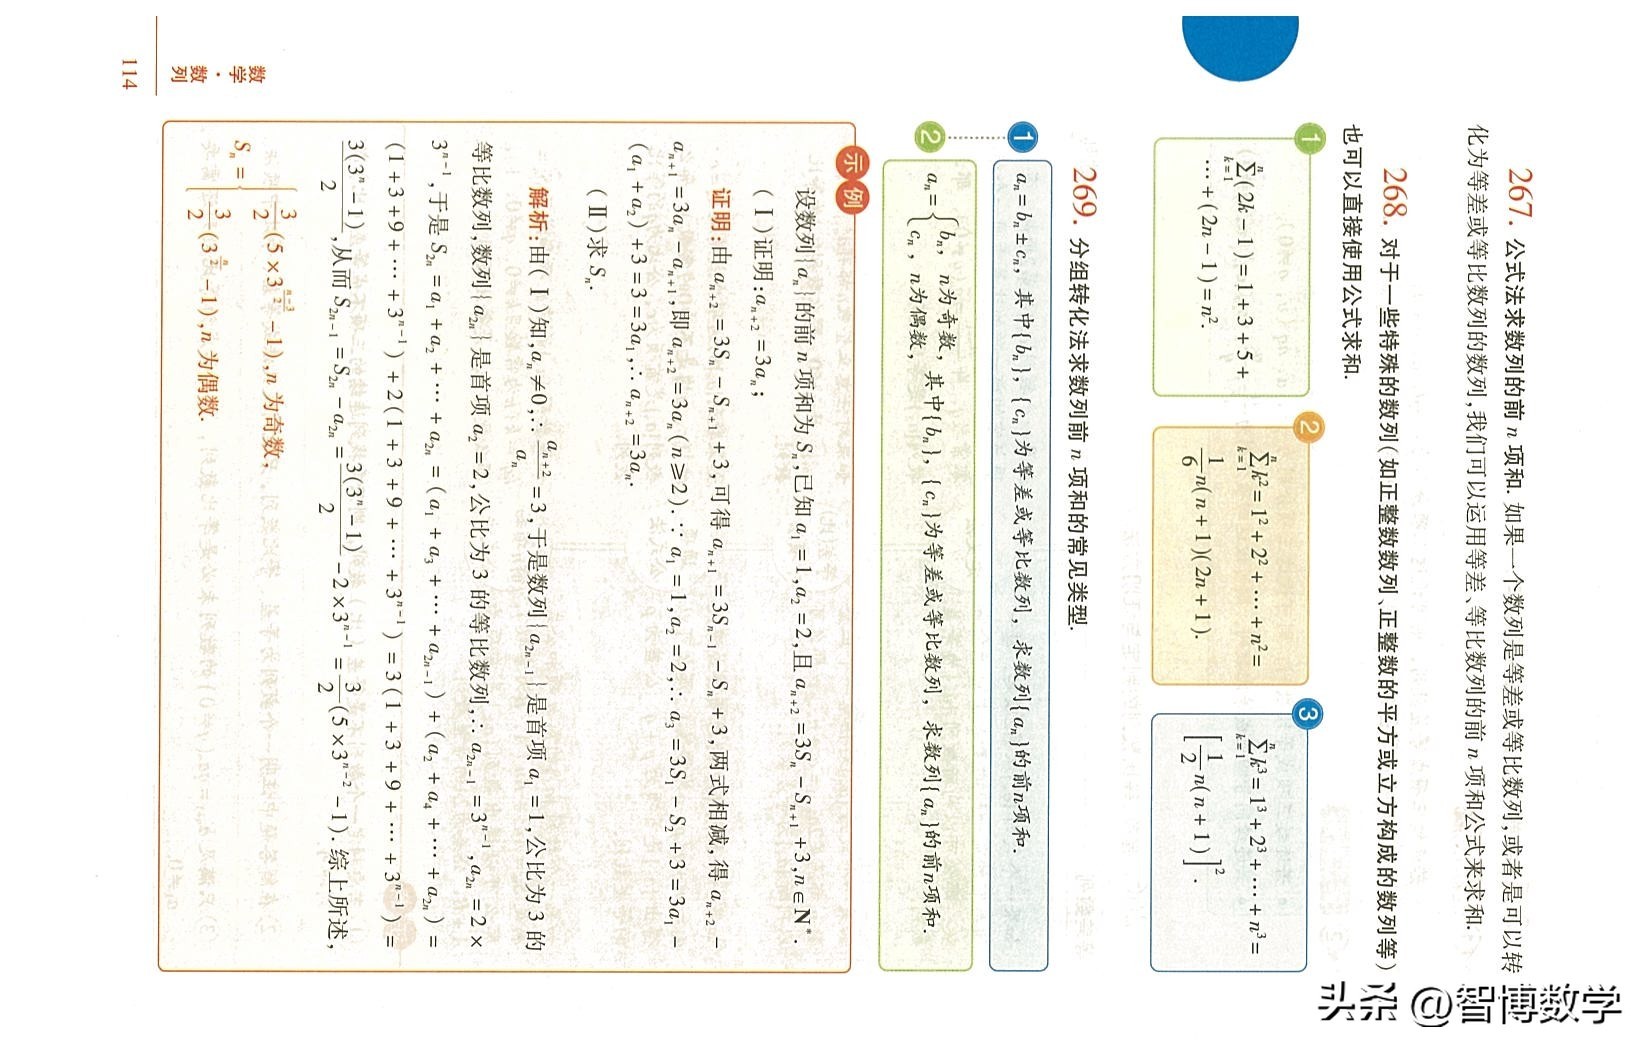 267. 公式法求数列的前 n 项和. 如果一个数列是等差或等比数列,或者是可以转
化为等差或等比数列的数列,我们可以运用等差、等比数列的前 n 项和公式来求和.
268. 对于一些特殊的数列(如正整数数列、正整数的平方或立方构成的数列等)
也可以直接使用公式求和.
1
∑_{k=1}^{n}(2k-1)=1+3+5+
…+(2n-1)=n².
2
∑_{k=1}^{n}k²=1²+2²+…+n²=
1/6 n(n+1)(2n+1).
3
∑_{k=1}^{n}k³=1³+2³+…+n³=
[1/2 n(n+1)]².
269. 分组转化法求数列前 n 项和的常见类型.
1 aₙ=bₙ±cₙ, 其中{bₙ}, {cₙ}为等差或等比数列, 求数列{aₙ}的前n项和.
2 aₙ={bₙ, n为奇数, cₙ, n为偶数, 其中{bₙ}, {cₙ}为等差或等比数列, 求数列{aₙ}的前n项和.
示例
设数列{aₙ}的前 n 项和为 Sₙ,已知 a₁=1,a₂=2,且 aₙ₊₂=3Sₙ-Sₙ₊₁+3,n∈N*.
(Ⅰ)证明:aₙ₊₂=3aₙ;
证明:由 aₙ₊₂=3Sₙ-Sₙ₊₁+3,可得 aₙ₊₁=3Sₙ₋₁-Sₙ+3,两式相减,得 aₙ₊₂-
aₙ₊₁=3aₙ-aₙ₊₁,即 aₙ₊₂=3aₙ(n≥2).∵ a₁=1,a₂=2,∴ a₃=3S₁-S₂+3=3a₁-
(a₁+a₂)+3=3=3a₁,∴ aₙ₊₂=3aₙ.
(Ⅱ)求 Sₙ.
解析:由(Ⅰ)知,aₙ≠0,∴ aₙ₊₂/aₙ=3,于是数列{a₂ₙ₋₁}是首项 a₁=1,公比为 3 的
等比数列,数列{a₂ₙ}是首项 a₂=2,公比为 3 的等比数列,∴ a₂ₙ₋₁=3ⁿ⁻¹,a₂ₙ=2×
3ⁿ⁻¹,于是 S₂ₙ=a₁+a₂+…+a₂ₙ=(a₁+a₃+…+a₂ₙ₋₁)+(a₂+a₄+…+a₂ₙ)=
(1+3+9+…+3ⁿ⁻¹)+2(1+3+9+…+3ⁿ⁻¹)=3(1+3+9+…+3ⁿ⁻¹)=
3(3ⁿ-1)/2,从而 S₂ₙ₋₁=S₂ₙ-a₂ₙ=3(3ⁿ-1)/2-2×3ⁿ⁻¹=3/2(5×3ⁿ⁻²-1). 综上所述,
Sₙ={3/2(5×3^{(n-3)/2}-1),n 为奇数,
3/2(3^{n/2}-1),n 为偶数.
数学·数列
114
头条 @智博数学